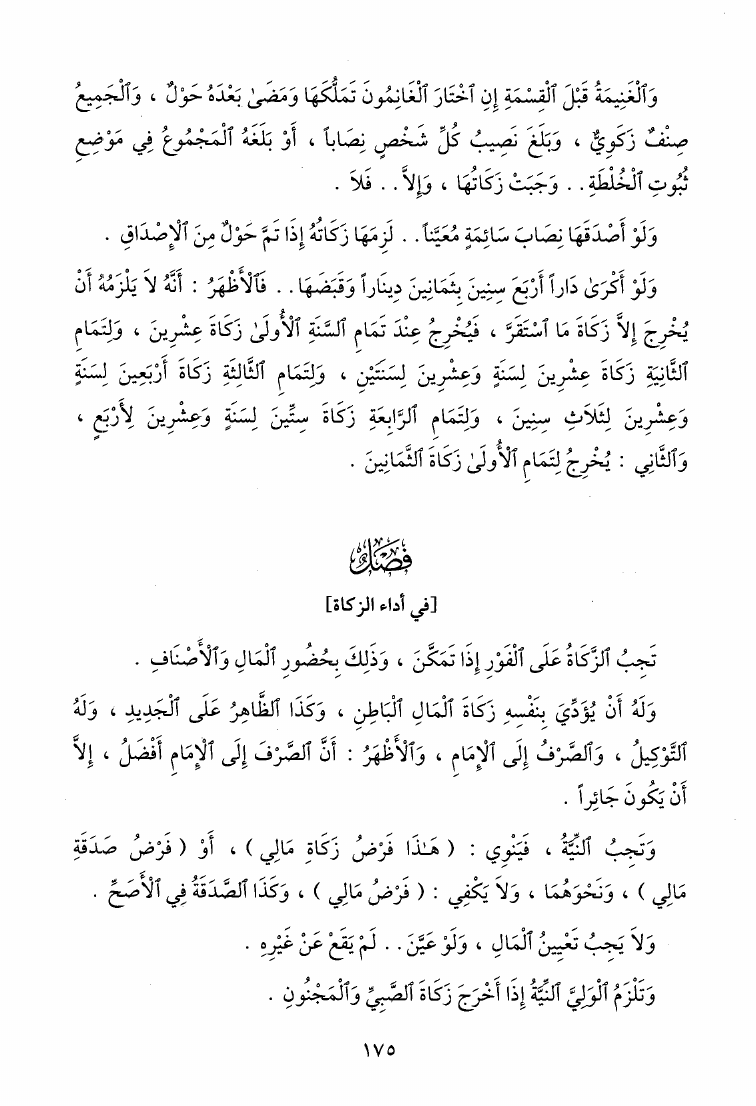 وَٱلْغَنِيمَةُ قَبْلَ ٱلْقِسْمَةِ إِنِ ٱخْتَارَ ٱلْغَانِمُونَ تَمَلُّكَهَا وَمَضَىٰ بَعْدَهُ حَوْلٌ ، وَٱلْجَمِيعُ
صِنْفٌ زَكَوِيٌّ ، وَبَلَغَ نَصِيبُ كُلِّ شَخْصٍ نِصَاباً ، أَوْ بَلَغَهُ ٱلْمَجْمُوعُ فِي مَوْضِعِ
ثُبُوتِ ٱلْخُلْطَةِ . . وَجَبَتْ زَكَاتُهَا ، وَإِلاَّ . . فَلاَ .
وَلَوْ أَصْدَقَهَا نِصَابَ سَائِمَةٍ مُعَيَّناً . . لَزِمَهَا زَكَاتُهُ إِذَا تَمَّ حَوْلٌ مِنَ ٱلْإِصْدَاقِ .
وَلَوْ أَكْرَىٰ دَاراً أَرْبَعَ سِنِينَ بِثَمَانِينَ دِينَاراً وَقَبَضَهَا . . فَٱلْأَظْهَرُ : أَنَّهُ لاَ يَلْزَمُهُ أَنْ
يُخْرِجَ إِلاَّ زَكَاةَ مَا ٱسْتَقَرَّ ، فَيُخْرِجُ عِنْدَ تَمَامِ ٱلسَّنَةِ ٱلْأُولَىٰ زَكَاةَ عِشْرِينَ ، وَلِتَمَامِ
ٱلثَّانِيَةِ زَكَاةَ عِشْرِينَ لِسَنَةٍ وَعِشْرِينَ لِسَنَتَيْنِ ، وَلِتَمَامِ ٱلثَّالِثَةِ زَكَاةَ أَرْبَعِينَ لِسَنَةٍ
وَعِشْرِينَ لِثَلاَثِ سِنِينَ ، وَلِتَمَامِ ٱلرَّابِعَةِ زَكَاةَ سِتِّينَ لِسَنَةٍ وَعِشْرِينَ لِأَرْبَعٍ ،
وَٱلثَّانِي : يُخْرِجُ لِتَمَامِ ٱلْأُولَىٰ زَكَاةَ ٱلثَّمَانِينَ .
فَصْلٌ
[في أداء الزكاة]
تَجِبُ ٱلزَّكَاةُ عَلَى ٱلْفَوْرِ إِذَا تَمَكَّنَ ، وَذَلِكَ بِحُضُورِ ٱلْمَالِ وَٱلْأَصْنَافِ .
وَلَهُ أَنْ يُؤَدِّيَ بِنَفْسِهِ زَكَاةَ ٱلْمَالِ ٱلْبَاطِنِ ، وَكَذَا ٱلظَّاهِرُ عَلَى ٱلْجَدِيدِ ، وَلَهُ
ٱلتَّوْكِيلُ ، وَٱلصَّرْفُ إِلَى ٱلْإِمَامِ ، وَٱلْأَظْهَرُ : أَنَّ ٱلصَّرْفَ إِلَى ٱلْإِمَامِ أَفْضَلُ ، إِلاَّ
أَنْ يَكُونَ جَائِراً .
وَتَجِبُ ٱلنِّيَّةُ ، فَيَنْوِي : ( هَـٰذَا فَرْضُ زَكَاةِ مَالِي ) ، أَوْ ( فَرْضُ صَدَقَةِ
مَالِي ) ، وَنَحْوَهُمَا ، وَلاَ يَكْفِي : ( فَرْضُ مَالِي ) ، وَكَذَا ٱلصَّدَقَةُ فِي ٱلْأَصَحِّ .
وَلاَ يَجِبُ تَعْيِينُ ٱلْمَالِ ، وَلَوْ عَيَّنَ . . لَمْ يَقَعْ عَنْ غَيْرِهِ .
وَتَلْزَمُ ٱلْوَلِيَّ ٱلنِّيَّةُ إِذَا أَخْرَجَ زَكَاةَ ٱلصَّبِيِّ وَٱلْمَجْنُونِ .
١٧٥